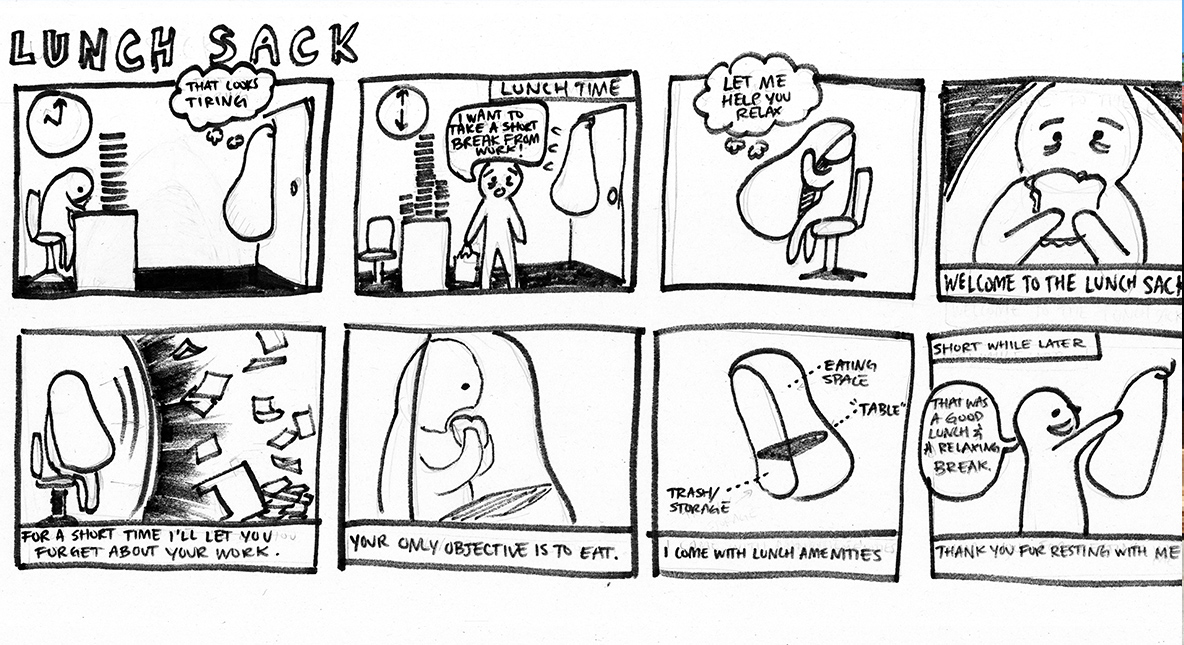 LUNCH SACK
THAT LOOKS
TIRING
LUNCH TIME
I WANT TO
TAKE A SHORT
BREAK FROM
WORK!
LET ME
HELP YOU
RELAX
WELCOME TO THE LUNCH SACK
FOR A SHORT TIME I'LL LET YOU
FORGET ABOUT YOUR WORK.
YOUR ONLY OBJECTIVE IS TO EAT.
EATING
SPACE
"TABLE"
TRASH/
STORAGE
I COME WITH LUNCH AMENITIES
SHORT WHILE LATER
THAT WAS
A GOOD
LUNCH &
A RELAXING
BREAK.
THANK YOU FOR RESTING WITH ME